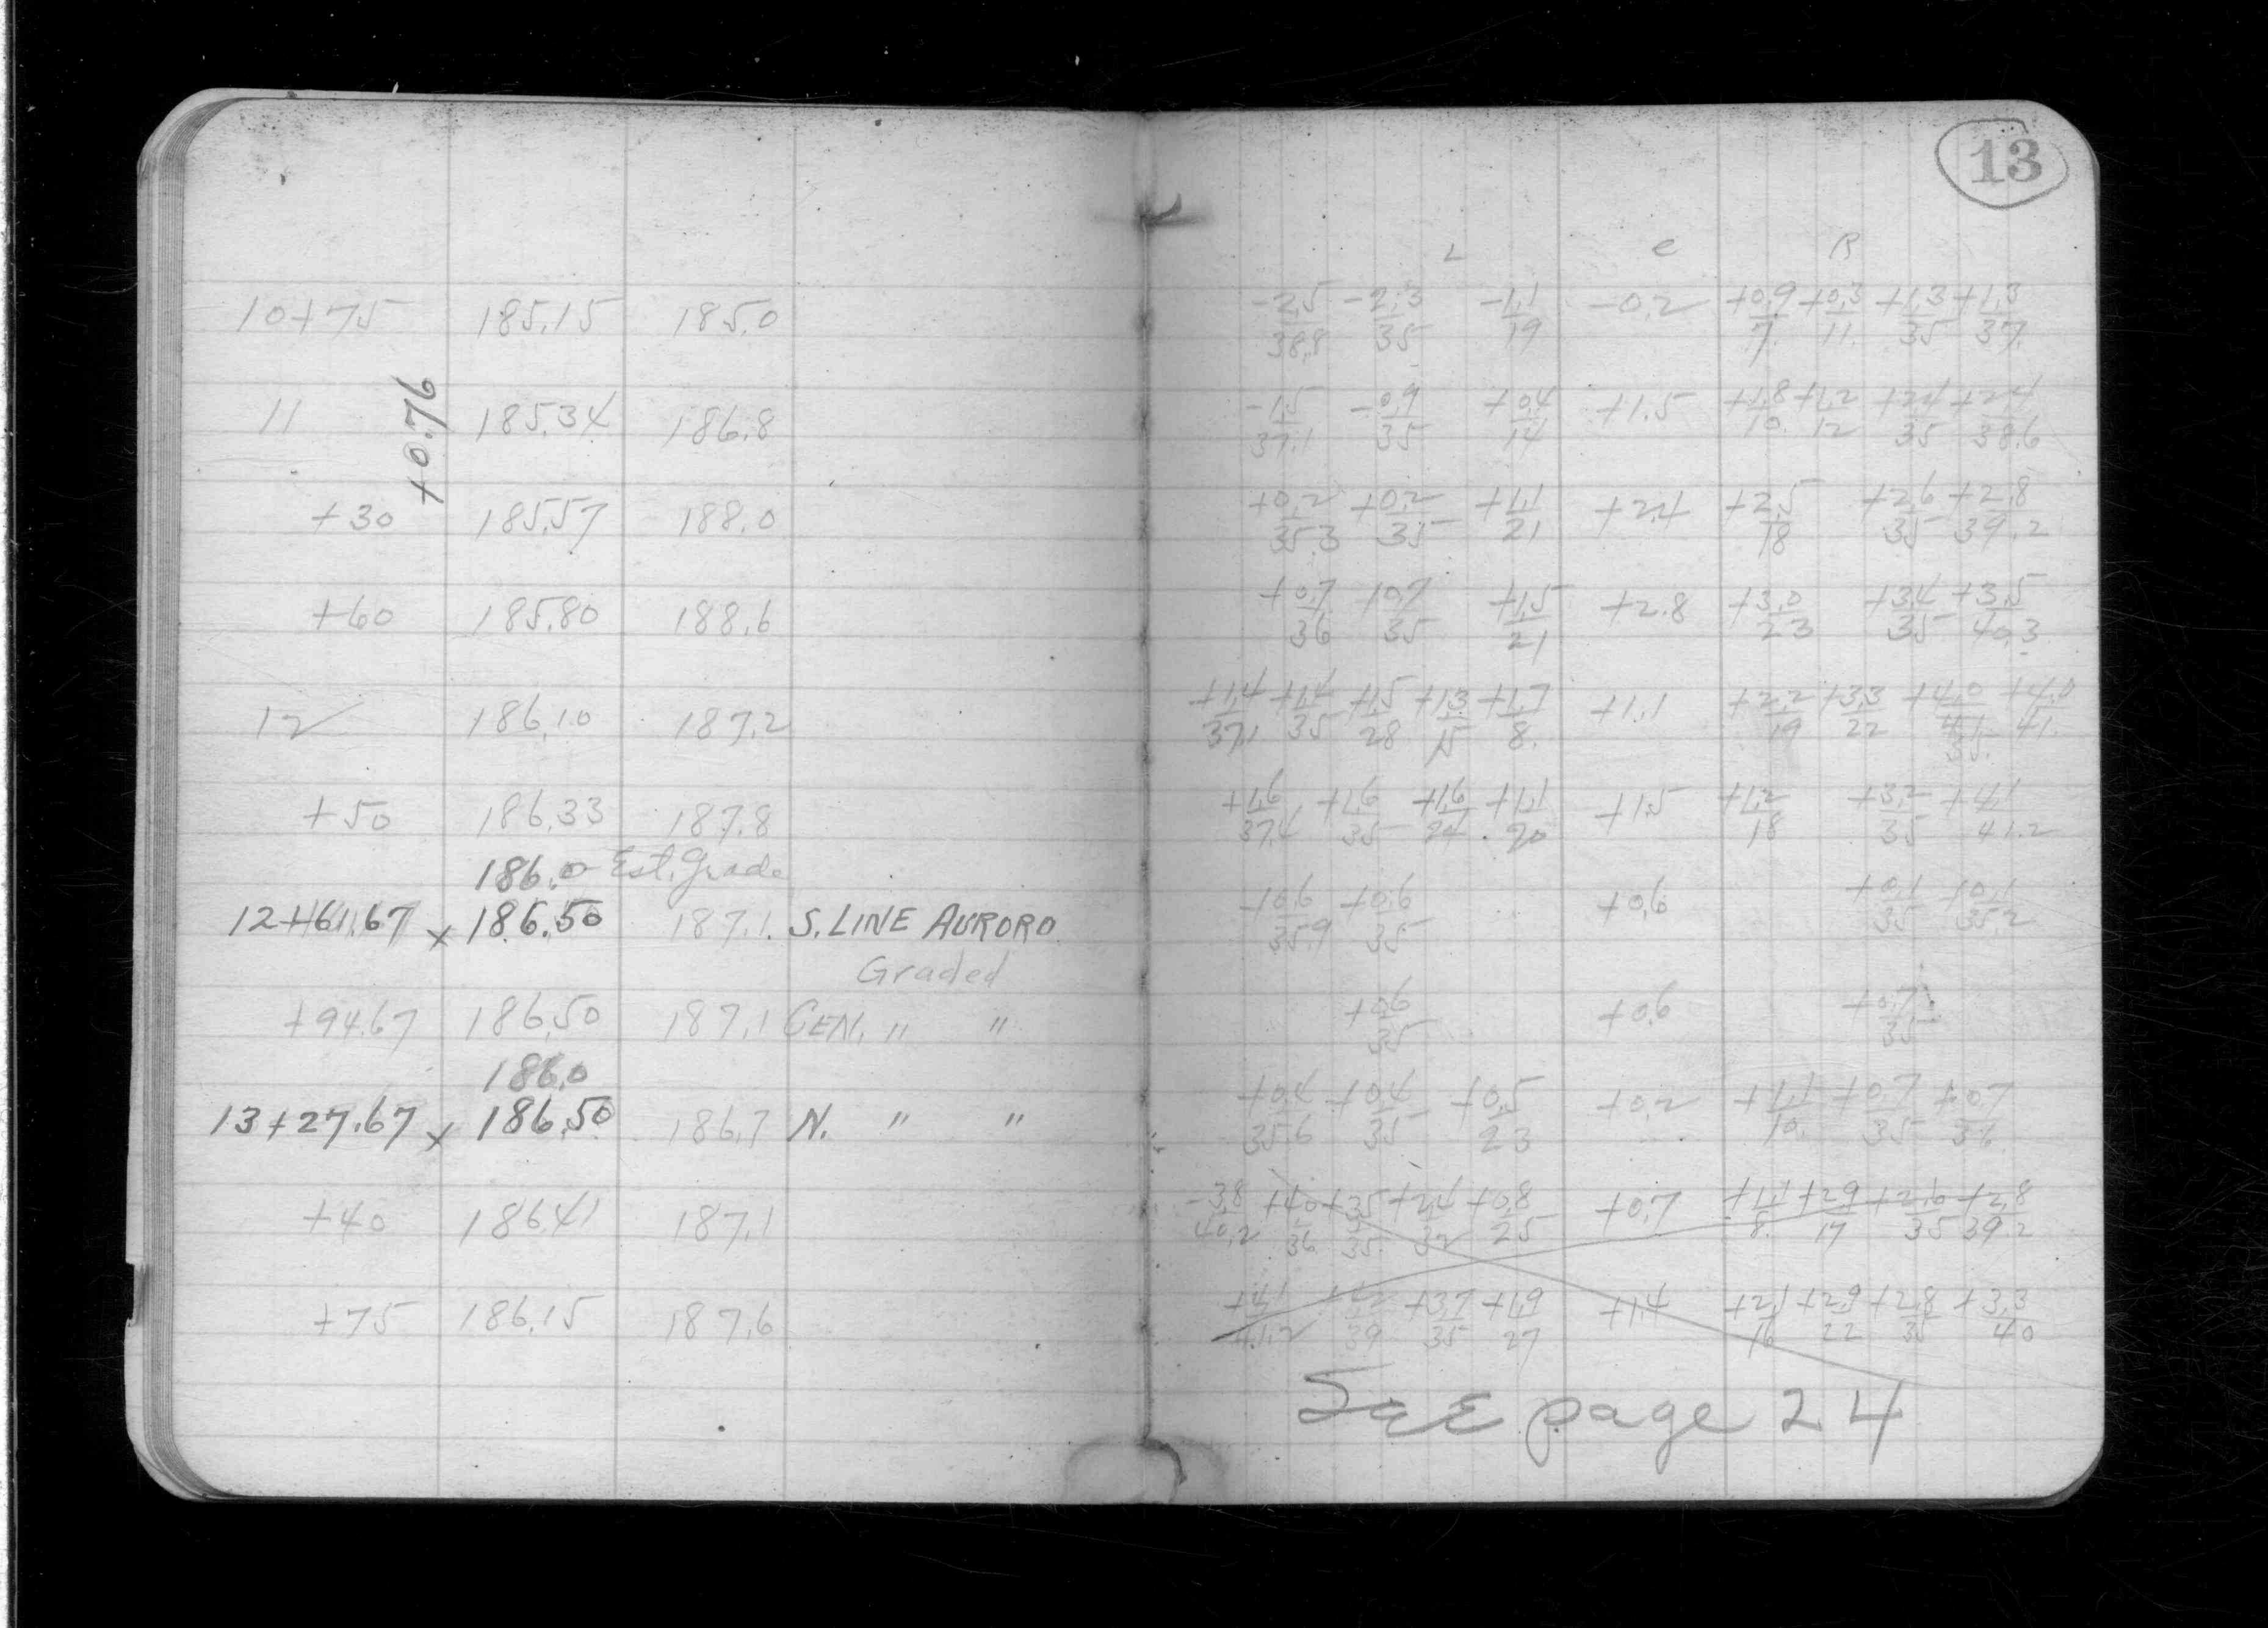 13
L C R
10+75 185.15 185.0 -2.5/38.8 -2.3/35 -1.1/19 -0.2 +0.9/7. +0.3/11. +1.3/35 +1.3/37.
+0.76
11 185.34 186.8 -1.5/37.1 -0.9/35 +0.4/14 +1.5 +1.8/10. +1.2/12 +2.4/35 +2.4/38.6
+30 185.57 188.0 +0.2/35.3 +0.2/35 +1.1/21 +2.4 +2.5/18 +2.6/35 +2.8/39.2
+60 185.80 188.6 +0.7/36 +0.7/35 +1.5/21 +2.8 +3.0/23 +3.4/35 +3.5/40.3
12 186.10 187.2 +1.4/37.1 +1.4/35 +1.5/28 +1.3/15 +1.7/8. +1.1 +2.2/19 +3.3/22 +4.0/35. +4.0/41.
+50 186.33 187.8 +1.6/37.4 +1.6/35 +1.6/24 +1.1/20 +1.5 +1.2/18 +3.2/35 +4.1/41.2
186.0 Est. Grade
12+61.67 x 186.50 187.1. S. LINE AURORO +0.6/35.9 +0.6/35 +0.6 +0.1/35 +0.1/35.2
Graded
+94.67 186.50 187.1 CEN. " " +0.6/35 +0.6 +0.7/35
186.0
13+27.67 x 186.50 186.7 N. " " +0.4/35.6 +0.4/35 +0.5/23 +0.2 +1.1/10. +0.7/35 +0.7/36
+40 186.41 187.1 -3.8/40.2 +4.0/36 +3.5/35. +2.4/32 +0.8/25 +0.7 +1.1/8. +2.9/17 +2.6/35 +2.8/39.2
+75 186.15 187.6 +4.1/41.2 +3.7/35 +1.9/27 +1.4 +2.1/16 +2.9/22 +2.8/35 +3.3/40
SEE page 24